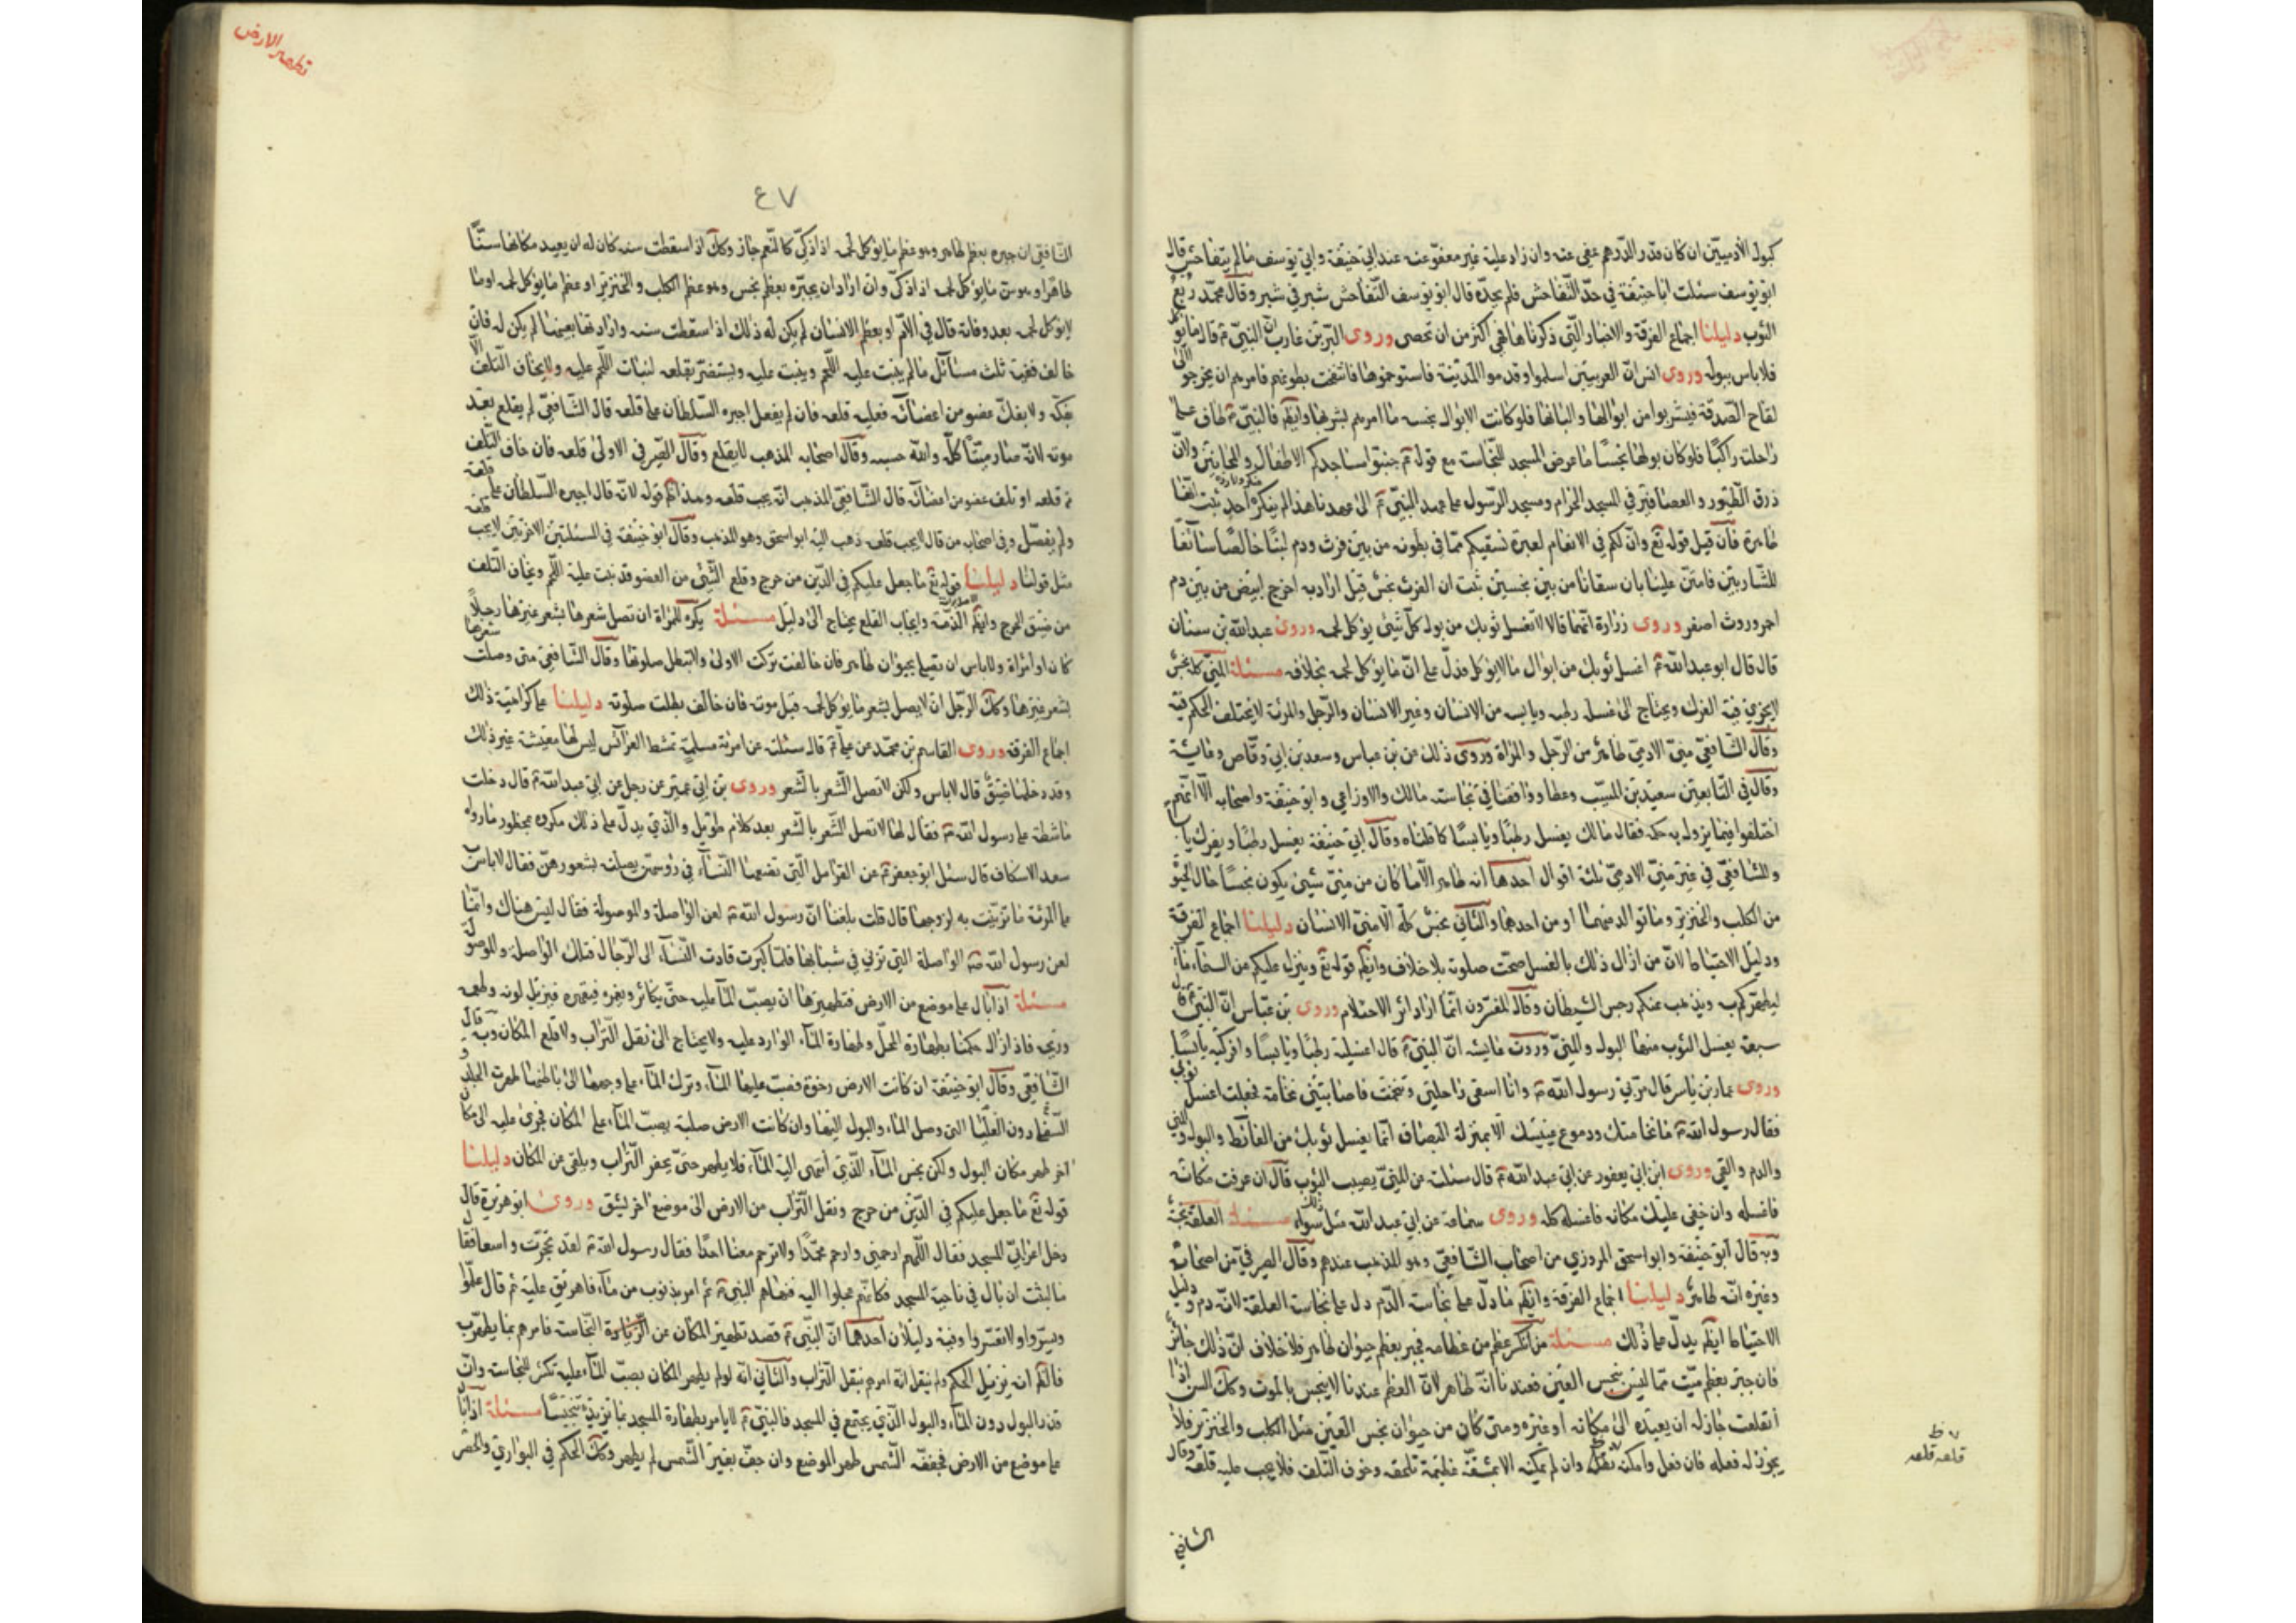 كبول الآدميّين ان كان قدر الدّرهم عفى عنه وان زاد عليه غير معفوّ عنه عند ابي حنيفة وابي يوسف ما لم يتفاحش قال
ابو يوسف سئلت ابا حنيفة في حدّ التّفاحش فلم يحدّه قال ابو يوسف التّفاحش شبر في شبر وقال محمّد ربع
الثوب دليلنا اجماع الفرقة والاخبار الّتي ذكرناها فهى اكثر من ان تحصى وروى البرّ بن عازب انّ النبيّ قال ما يؤ
فلا باس ببوله وروى انس انّ العرنيين اسلموا وقدموا المدينة فاستوخموها فانتفخت بطونهم فامرهم ان يخرجو الى
لقاح الصّدقة فيشربوا من ابوالها والبانها فلو كانت الابوال نجسه ما امرهم بشربها وايضا فالنبيّ طاف على
راحلته راكبًا فلو كان بولها نجسًا ما عرض المسجد للنّجاسة مع قوله جنبوا مساجدكم الاطفال والمجانين ولانّ
ذرق الطّيور والعصافير في المسجد الحرام ومسجد الرّسول على عهد النبيّ الى عهدنا هذا لم ينكره احد ثبت انّها
طاهرة فان قيل قوله تع وانّ لكم في الانعام لعبرة نسقيكم ممّا في بطونه من بين فرث ودم لبنًا خالصًا سائغًا
للشّاربين فامتن علينا بان سقانا من بين نجسين ثبت ان الفرث نجس قيل اراد به اخرج ابيض من بين دم
احمر وروث اصفر وروى زرارة انّهما قالا لا تغسل ثوبك من بول كلّ شيئ يؤكل لحمه وروى عبدالله بن سنان
قال قال ابو عبدالله اغسل ثوبك من ابوال ما لا يؤكل فدلّ على انّ ما يؤكل لحمه بخلافه مسئلة المنيّ كله نجس
لا يجزي فيه الفرك ويحتاج الى غسل رطبه ويابسه من الانسان وغير الانسان والرّجل والمرئة لا يختلف الحكم فيه
وقال الشّافعيّ منيّ الادميّ طاهر من الرّجل والمراة وروى ذلك عن بن عباس وسعد بن ابي وقّاص وعايشة
وقال في التّابعين سعيد بن المسيّب وعطا ووافقنا في نجاسته مالك والاوزاعي وابو حنيفة واصحابه الّا انّهم
اختلفوا فيما يزول به حكمه فقال مالك يغسل رطبًا ويابسًا كما قلناه وقال ابي حنيفة يغسل رطبًا ويفرك يابسا
وللشّافعيّ في غير منيّ الادميّ ثلثة اقوال احدها انه طاهر الّا ما كان من منيّ شيئ يكون نجسًا حال الحيوة
من الكلب والخنزير وما توالد منهما او من احدهما والثّاني نجس كلّه الّا منيّ الانسان دليلنا اجماع الفرقة
ودليل الاحتياط لانّ من ازال ذلك بالغسل صحّت صلوته بلا خلاف وايضا قوله تع وينزل عليكم من السّماء ماء
ليطهّركم به ويذهب عنكم رجس الشيطان وقال المفسّرون انّما اراد اثر الاحتلام وروى بن عبّاس انّ النبيّ قال
سبعة يغسل الثوب منها البول والمنيّ وروت عايشه انّ النبيّ قال اغسليه رطبًا ويابسًا وافركيه يابسًا
وروى عمار بن ياسر قال مرّ بي رسول الله وانا اسقى راحلتي وتنخمت فاصابتني نخامة فجعلت اغسل ثوبي
فقال رسول الله ما نخامتك ودموع عينيك الّا بمنزلة البصاق انّما يغسل ثوبك من الغائط والبول والمني
والدم والقي وروى ابن ابي يعفور عن ابي عبدالله قال سئلته عن المنيّ يصيب الثوب قال ان عرفت مكانه
فاغسله وان خفى عليك مكانه فاغسله كله وروى سماعة عن ابي عبدالله مثل ذلك سواء مسئلة العلقة نجسة
وبه قال ابو حنيفة وابو اسحق المروزي من اصحاب الشّافعيّ وهو المذهب عندهم وقال الصيرفيّ من اصحابه
وغيره انّه طاهر دليلنا اجماع الفرقة وايضا ما دلّ على نجاسة الدّم دل على نجاسة العلقة لانّه دم ودليل
الاحتياط ايضا يدلّ على ذلك مسئلة من انكسر عظم من عظامه فجبر بعظم حيوان طاهر فلا خلاف انّ ذلك جائز
فان جبر بعظم ميّت ممّا ليس بنجس العين فعندنا انّه طاهر لانّ العظم عندنا لا ينجس بالموت وكك السن اذا
انقلعت جاز له ان يعيده الى مكانه او غيره ومتى كان من حيوان نجس العين مثل الكلب والخنزير فلا
يجوز له فعله فان فعل وامكنه نقله وان لم يمكنه الا بمشقّة عظيمة تلحقه وخوف التّلف فلا يجب عليه قلعه وقال
الشافعي
قلعه قلعه
تطهير الارض
٤٧
الشّافعي ان جبره بعظم طاهر وهو عظم ما يؤكل لحمه اذا ذكّي كالنّعم جاز وكك اذا سقطت سنه كان له ان يعيد مكانها سنًّا
طاهرا وهو سن ما يؤكل لحمه اذا ذكّى وان اراد ان يجبّره بعظم نجس وهو عظم الكلب والخنزير او عظم ما يؤكل لحمه او ما
لا يؤكل لحمه بعد وفاته قال في الامّ او بعظم الانسان لم يكن له ذلك اذا سقطت سنه واراد اعادتها بعينها لم يكن له فان
خالف ففيه ثلث مسائل ما لم ينبت عليه اللّحم وينبت عليه ويستضرّ بقلعه لنبات اللّحم عليه ولا يخاف التّلف
بفكّه ولا بفكّ عضو من اعضائه فعليه قلعه فان لم يفعل اجبره السّلطان على قلعه قال الشّافعيّ لم يقلع بعد
موته لانّه صار ميّتًا كلّه والله حسيبه وقال اصحابه المذهب لا يقلع وقال الصّيرفي الاولى قلعه فان خاف التّلف
من قلعه او تلف عضو من اعضائه قال الشّافعيّ المذهب انّه يجب قلعه وهذا ظاهر قوله لانّه قال اجبره السّلطان على قلعه
ولم يفصّل وفي اصحابه من قال لا يجب قلعه ذهب اليه ابو اسحق وهو المذهب وقال ابو حنيفة في المسئلتين الاخرتين لا يجب قلعه
مثل قولنا دليلنا قوله تع ما جعل عليكم في الدّين من حرج وقلع الشّيئ من العضو قد نبت عليه اللّحم ويخاف التّلف
من ضيق الحرج وايضا الذّمّة وايجاب القلع يحتاج الى دليل مسئلة يكره للمراة ان تصل شعرها بشعر غيرها رجلاً
كان او امراة ولا باس ان تصل شعرها بحيوان طاهر فان خالفت تركت الاولى ولا تبطل صلوتها وقال الشّافعيّ متى وصلت
بشعر غيرها وكك الرّجل ان لا يصل بشعر ما يؤكل لحمه قبل موته فان خالف بطلت صلوته دليلنا على كراهية ذلك
اجماع الفرقة وروى القاسم بن محمّد عن علي قال سئلته عن امرئة مسلمة تمشط العرائس ليس لها معيشة غير ذلك
وقد دخلها ضيق قال لا باس ولكن لا تصل الشّعر بالشّعر وروى بن ابي عمير عن رجل عن ابي عبدالله قال دخلت
ماشطة على رسول الله فقال لها لا تصل الشّعر بالشّعر بعد كلام طويل والّذي يدلّ على ذلك مكروه غير محظور ما رواه
سعد الاسكاف قال سئل ابو جعفر عن القرامل الّتي تضعها النّساء في رؤسهنّ يصلنه بشعورهنّ فقال لا باس
على المرئة ما تزيّنت به لزوجها قال قلت بلغنا انّ رسول الله لعن الواصلة والموصولة فقال ليس هناك وانّما
لعن رسول الله الواصلة الّتي تزني في شبابها فلمّا كبرت قادت النّساء الى الرّجال فتلك الواصلة والموصولة
مسئلة اذا بال على موضع من الارض فتطهيرها ان يصبّ الماء عليه حتّى يكاثره ويغمره فيقهره فيزيل لونه وطعمه
وريحه فاذا زال حكمنا بطهارة المحلّ وطهارة الماء الوارد عليه ولا يحتاج الى نقل التّراب ولا قلع المكان وبه قال
الشّافعي وقال ابو حنيفة ان كانت الارض رخوة فصبّ عليها الماء ونزل الماء عن وجهها الى باطنها طهرت الجلدة
السّفلى دون العليا التي وصل الماء والبول اليها وان كانت الارض صلبة يصبّ الماء على المكان فجرى عليه الى مكان
اخر طهر مكان البول ولكن نجس الماء الّذي انتهى اليه الماء فلا يطهر حتّى يحفر التّراب ويلقى عن المكان دليلنا
قوله تع ما جعل عليكم في الدّين من حرج ونقل التّراب من الارض الى موضع اخر يشقّ وروى ابو هريرة قال
دخل اعرابيّ المسجد فقال اللّهم ارحمني وارحم محمّدًا ولا ترحم معنا احدًا فقال رسول الله لقد تحجّرت واسعا فقال
ما لبثت ان بال في ناحية المسجد فكانّهم عجلوا اليه فنهاهم النبيّ ثم امر بذنوب من ماء فاهريق عليه ثم قال علّموا
ويسّروا ولا تعسّروا وفيه دليلان احدهما انّ النّبيّ قصد تطهير المكان عن النّجاسة فامرهم بما يطهّر به
فالظّاهر ان يزيل الحكم ولم ينقل انّه امرهم بنقل التّراب والثّاني انّه لو لم يطهر المكان بصبّ الماء عليه تكثر للنجاسة وانّ
قدر البول دون الماء والبول الّذي يجتمع في المسجد فالنبيّ لا يامر بطهارة المسجد بما يزيده تنجيسًا مسئلة اذا بال
على موضع من الارض فجفّفه الشّمس طهر الموضع وان جفّ بغير الشّمس لم يطهر وكك الحكم في البواري والحصر